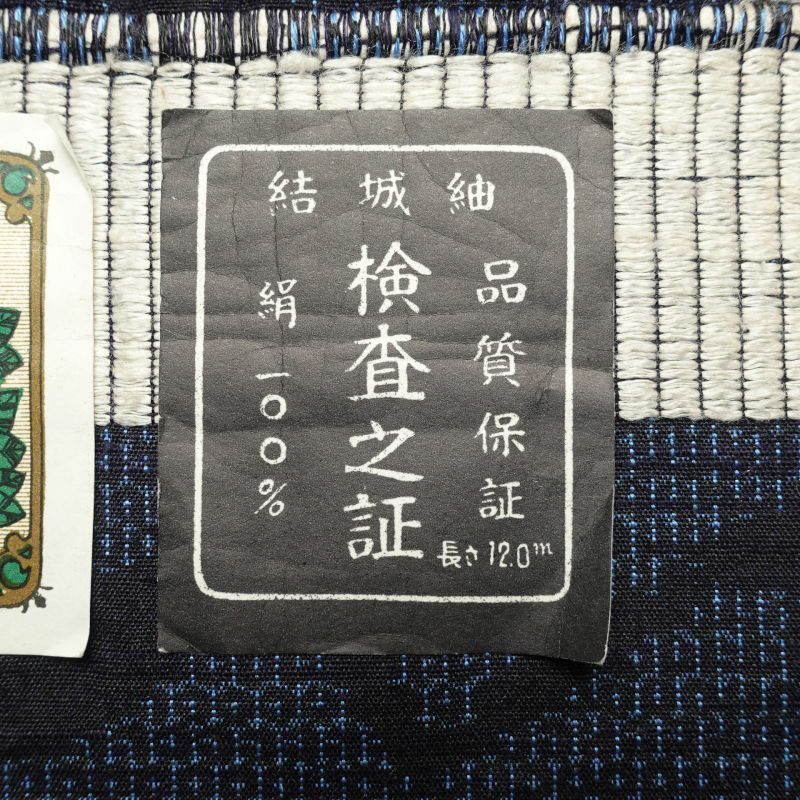 結城紬
品質保証
長さ12.0m
検査之証
絹一〇〇%